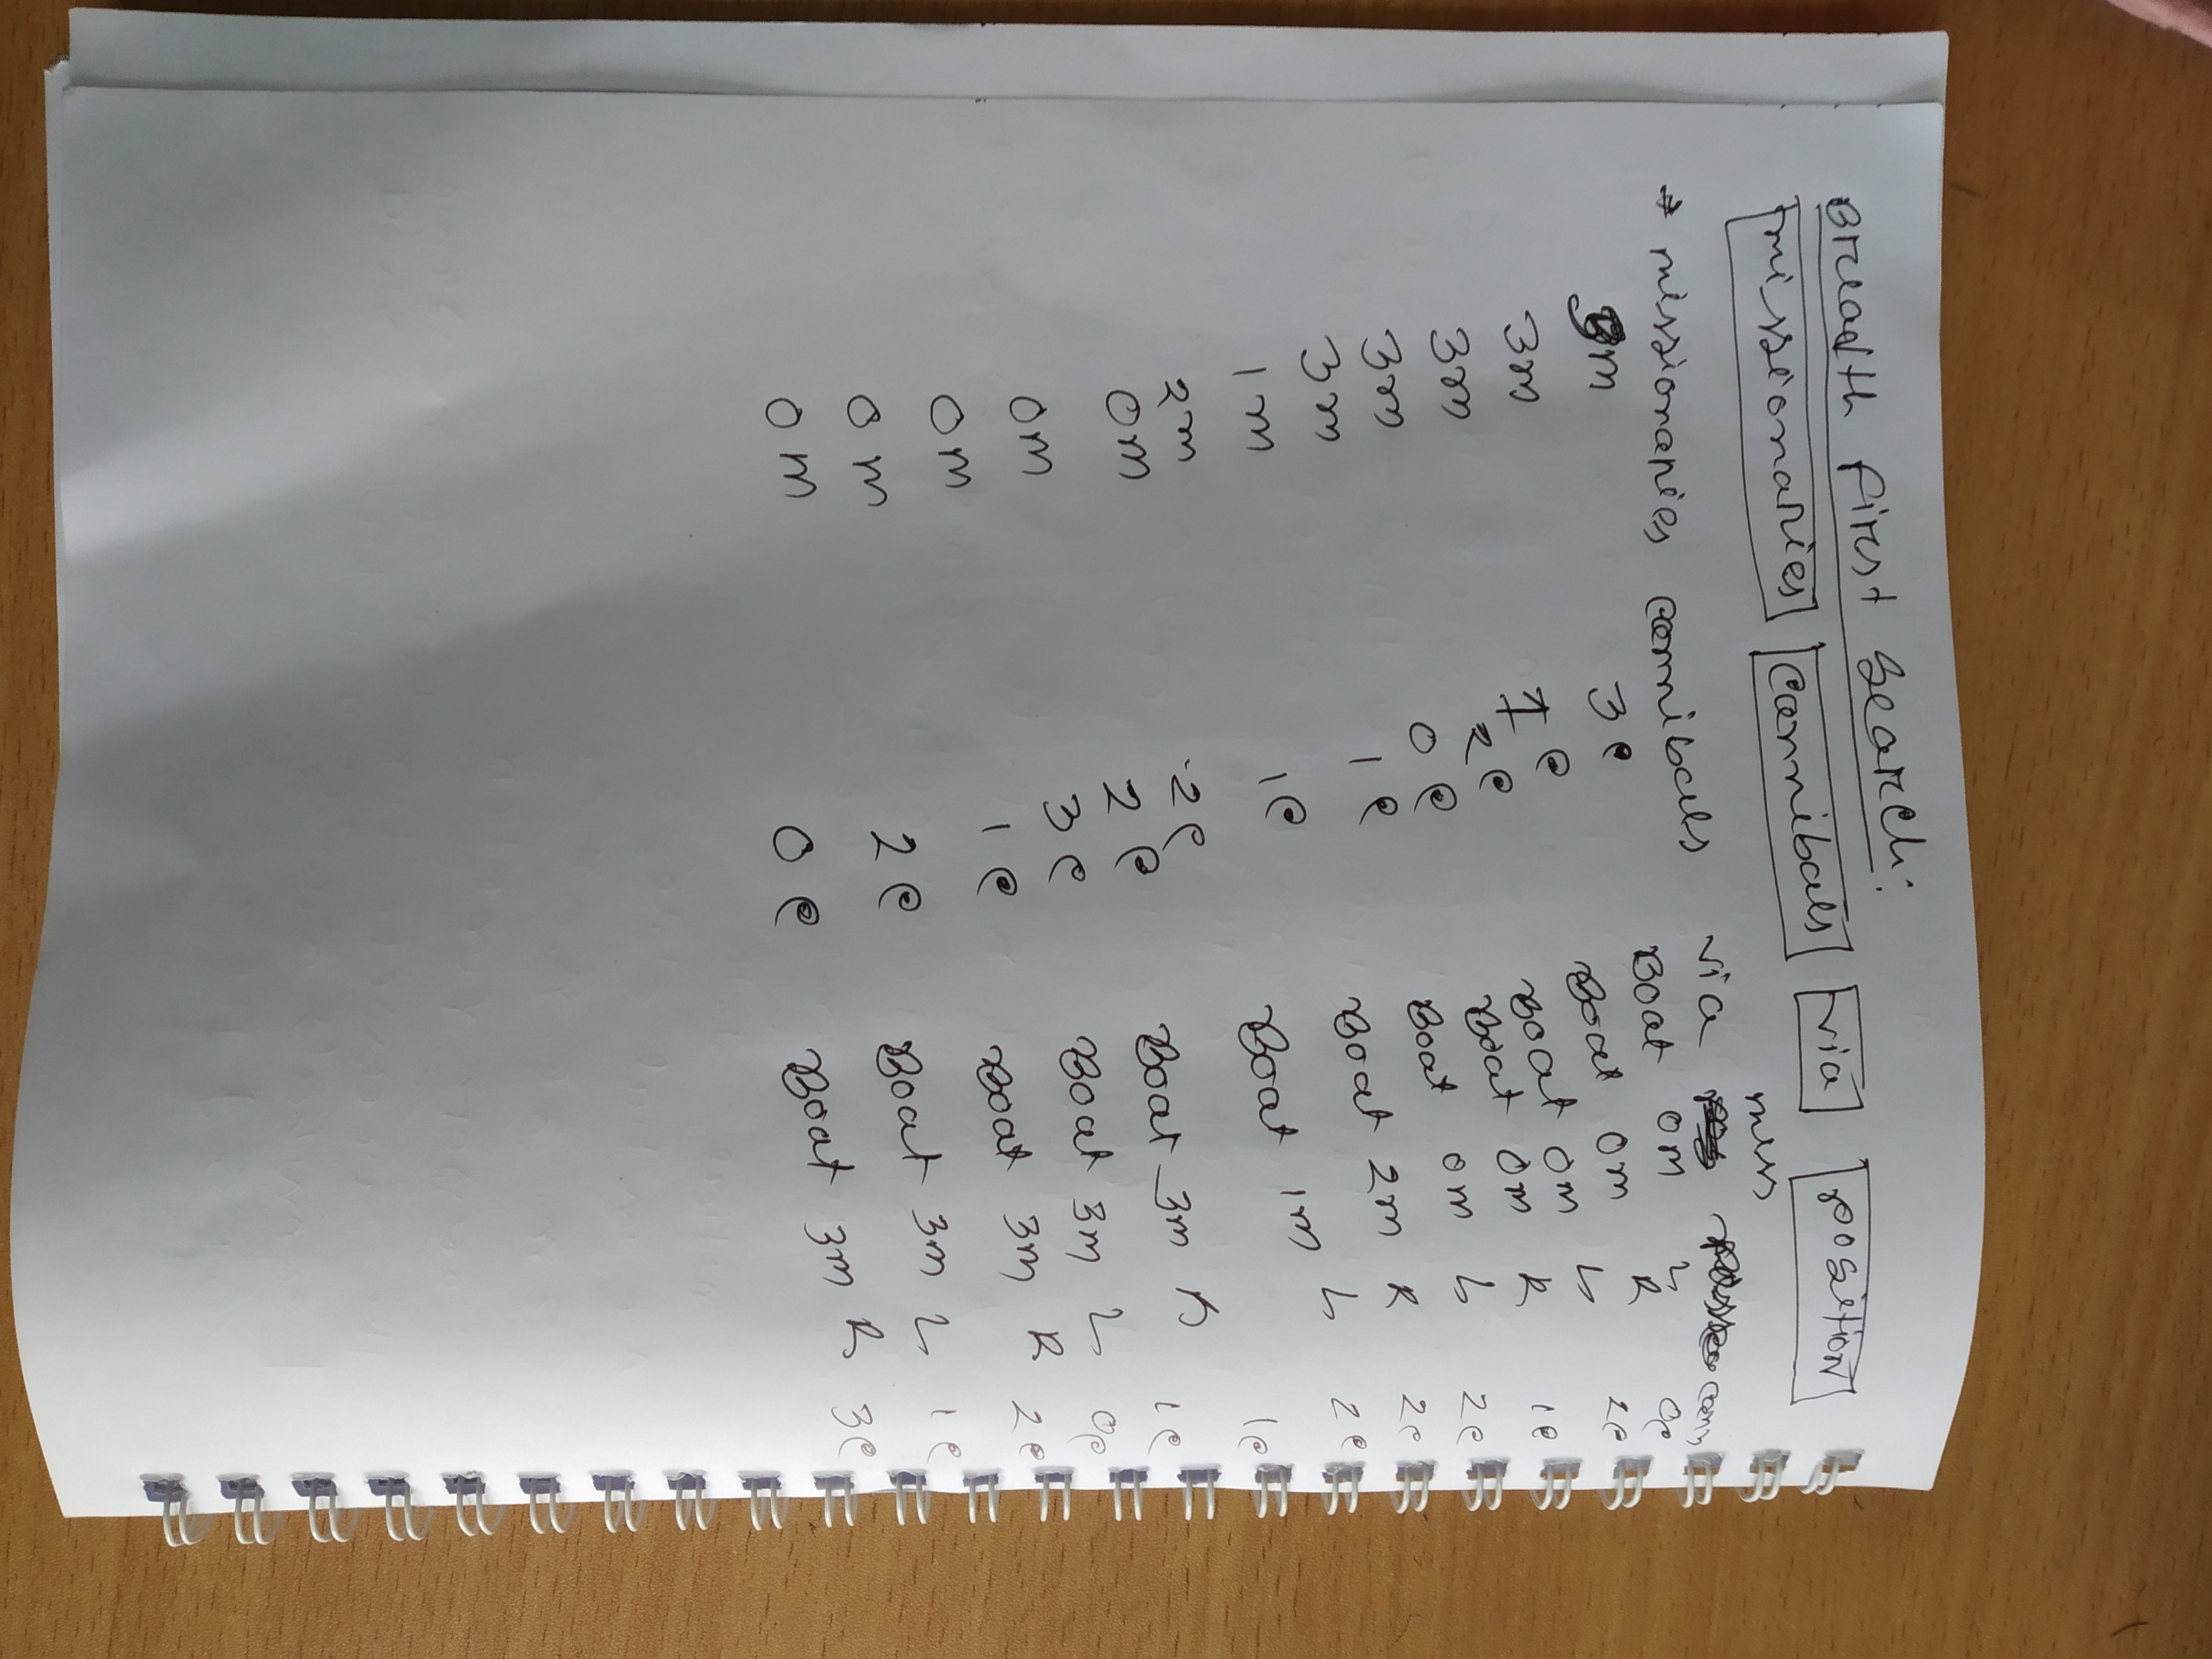 Breadth First Search:
missionaries cannibals via position
* missionaries cannibals via miss cann
3m 3c Boat 0m L 0c
3m 1c Boat 0m R 2c
3m 2c Boat 0m L 1c
3m 0c Boat 0m R
3m 1c Boat 0m L 2c
1m 1c Boat 2m R 2c
2m 2c Boat 1m L 1c
0m 2c Boat 3m R 1c
0m 3c Boat 3m L 0c
0m 1c Boat 3m R 2c
0m 2c Boat 3m L 1c
0m 0c Boat 3m R 3c